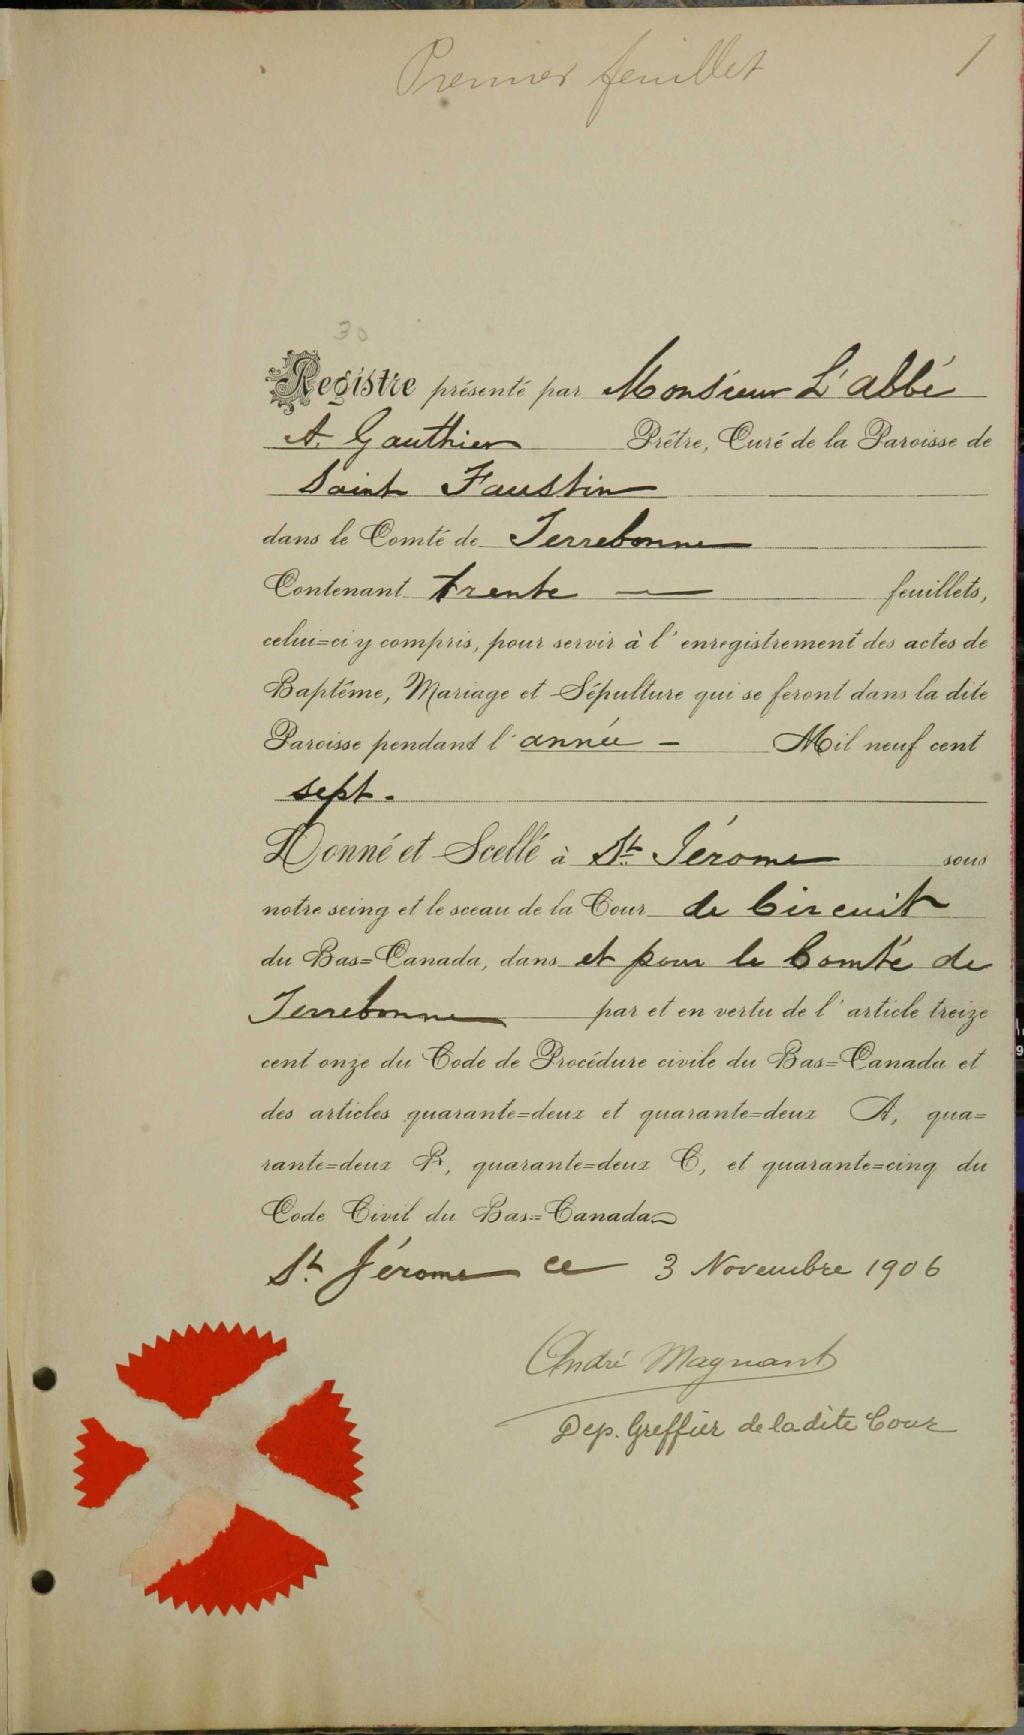 Premier feuillet 1
30
Registre présenté par Monsieur L'abbé
A. Gauthier Prêtre, Curé de la Paroisse de
Saint Faustin
dans le Comté de Terrebonne
Contenant trente — feuillets,
celui=ci y compris, pour servir à l'enregistrement des actes de
Baptême, Mariage et Sépulture qui se feront dans la dite
Paroisse pendant l'année – Mil neuf cent
sept.
Donné et Scellé à St. Jérome sous
notre seing et le sceau de la Cour de Circuit
du Bas=Canada, dans et pour le Comté de
Terrebonne par et en vertu de l'article treize
cent onze du Code de Procédure civile du Bas=Canada et
des articles quarante=deux et quarante=deux A, qua=
rante=deux B, quarante=deux C, et quarante=cinq du
Code Civil du Bas=Canada
St Jérome ce 3 Novembre 1906
André Magnant
Dep. Greffier de la dite Cour